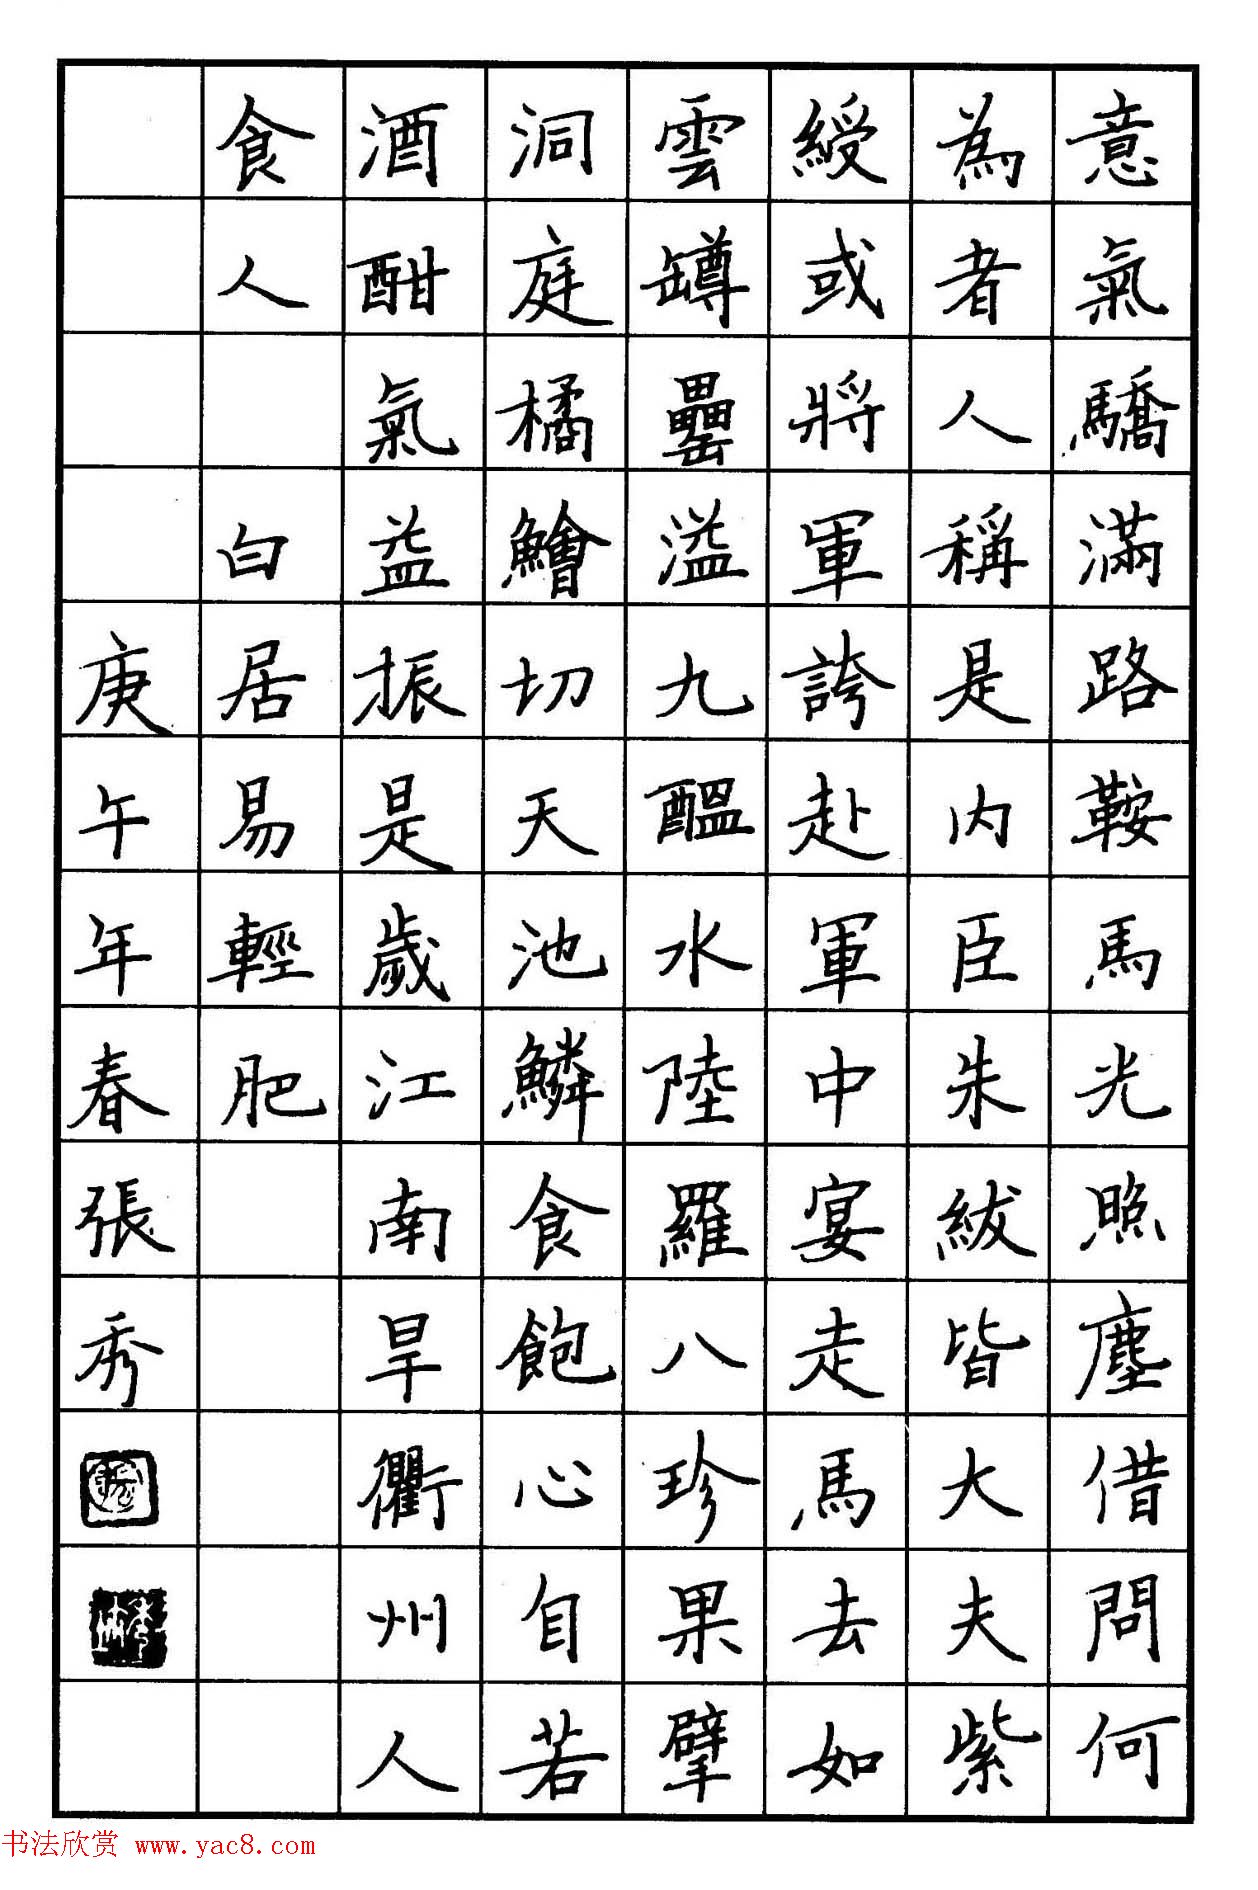 意氣驕滿路鞍馬光照塵借問何
為者人稱是内臣朱紱皆大夫紫
綬或將軍誇赴軍中宴走馬去如
雲罇罍溢九醖水陸羅八珍果擘
洞庭橘鱠切天池鱗食飽心自若
酒酣氣益振是歲江南旱衢州人
食人 白居易輕肥
庚午年春張秀
书法欣赏 www.yac8.com